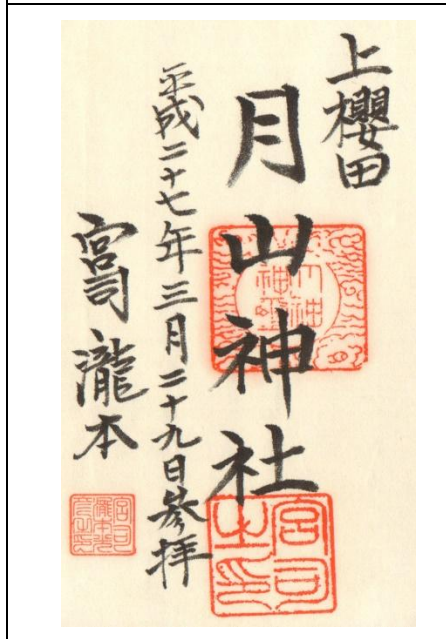 上櫻田
月山神社
平成二十七年三月二十九日参拝
宮司 瀧本
宮司之印